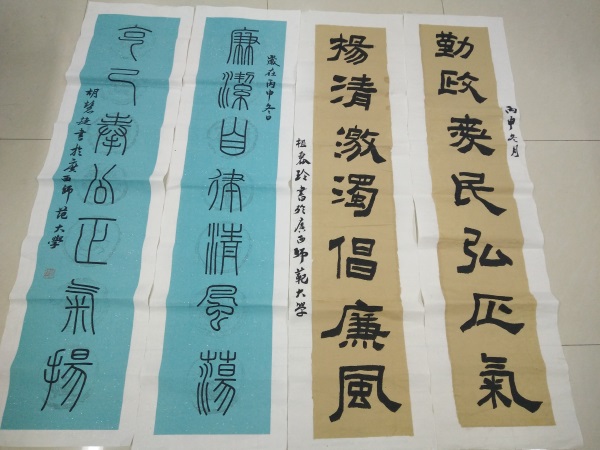 勤政爱民弘正氣
丙申冬月
揚清激濁倡廉風
書於廣西師範大學
廉潔自律清風蕩
歲在丙申冬日
克己奉公正氣揚
胡慧書於廣西師範大學